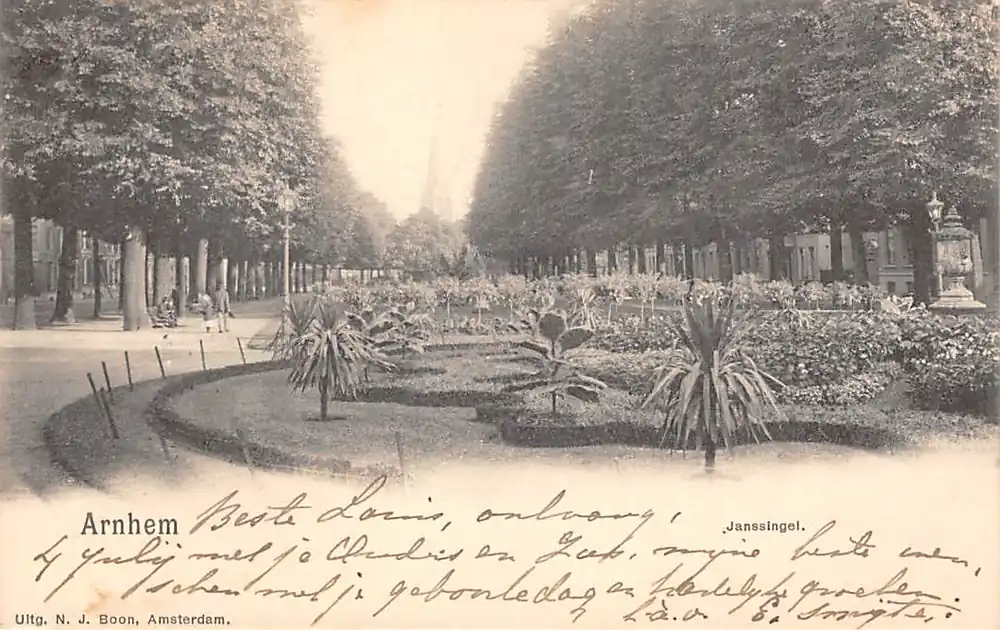 Arnhem
Janssingel.
Beste Louis, ontvang,
4 July met je Ouders en Zus. mijne beste wen,
schen met je geboortedag en hartelijke groeten.
Uitg. N. J. Boon, Amsterdam.